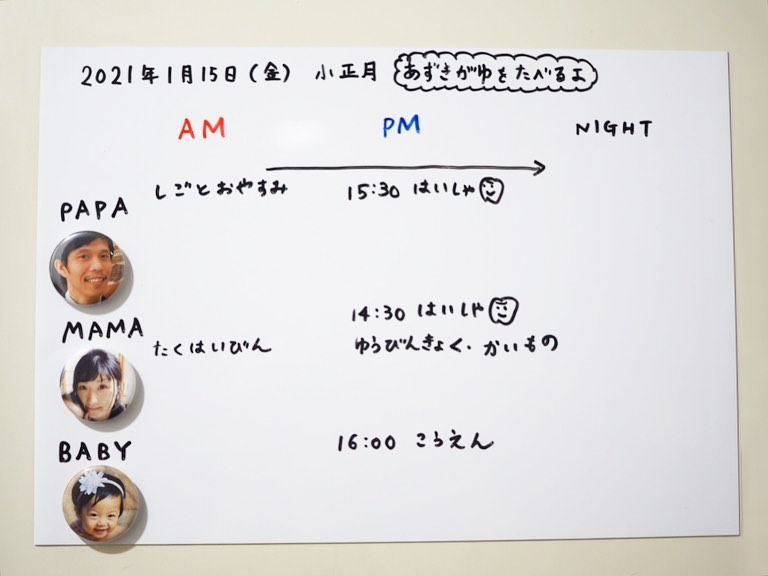 2021年1月15日(金) 小正月 あずきがゆをたべるよ
AM PM NIGHT
PAPA しごとおやすみ 15:30 はいしゃ
14:30 はいしゃ
MAMA たくはいびん ゆうびんきょく・かいもの
BABY 16:00 こうえん